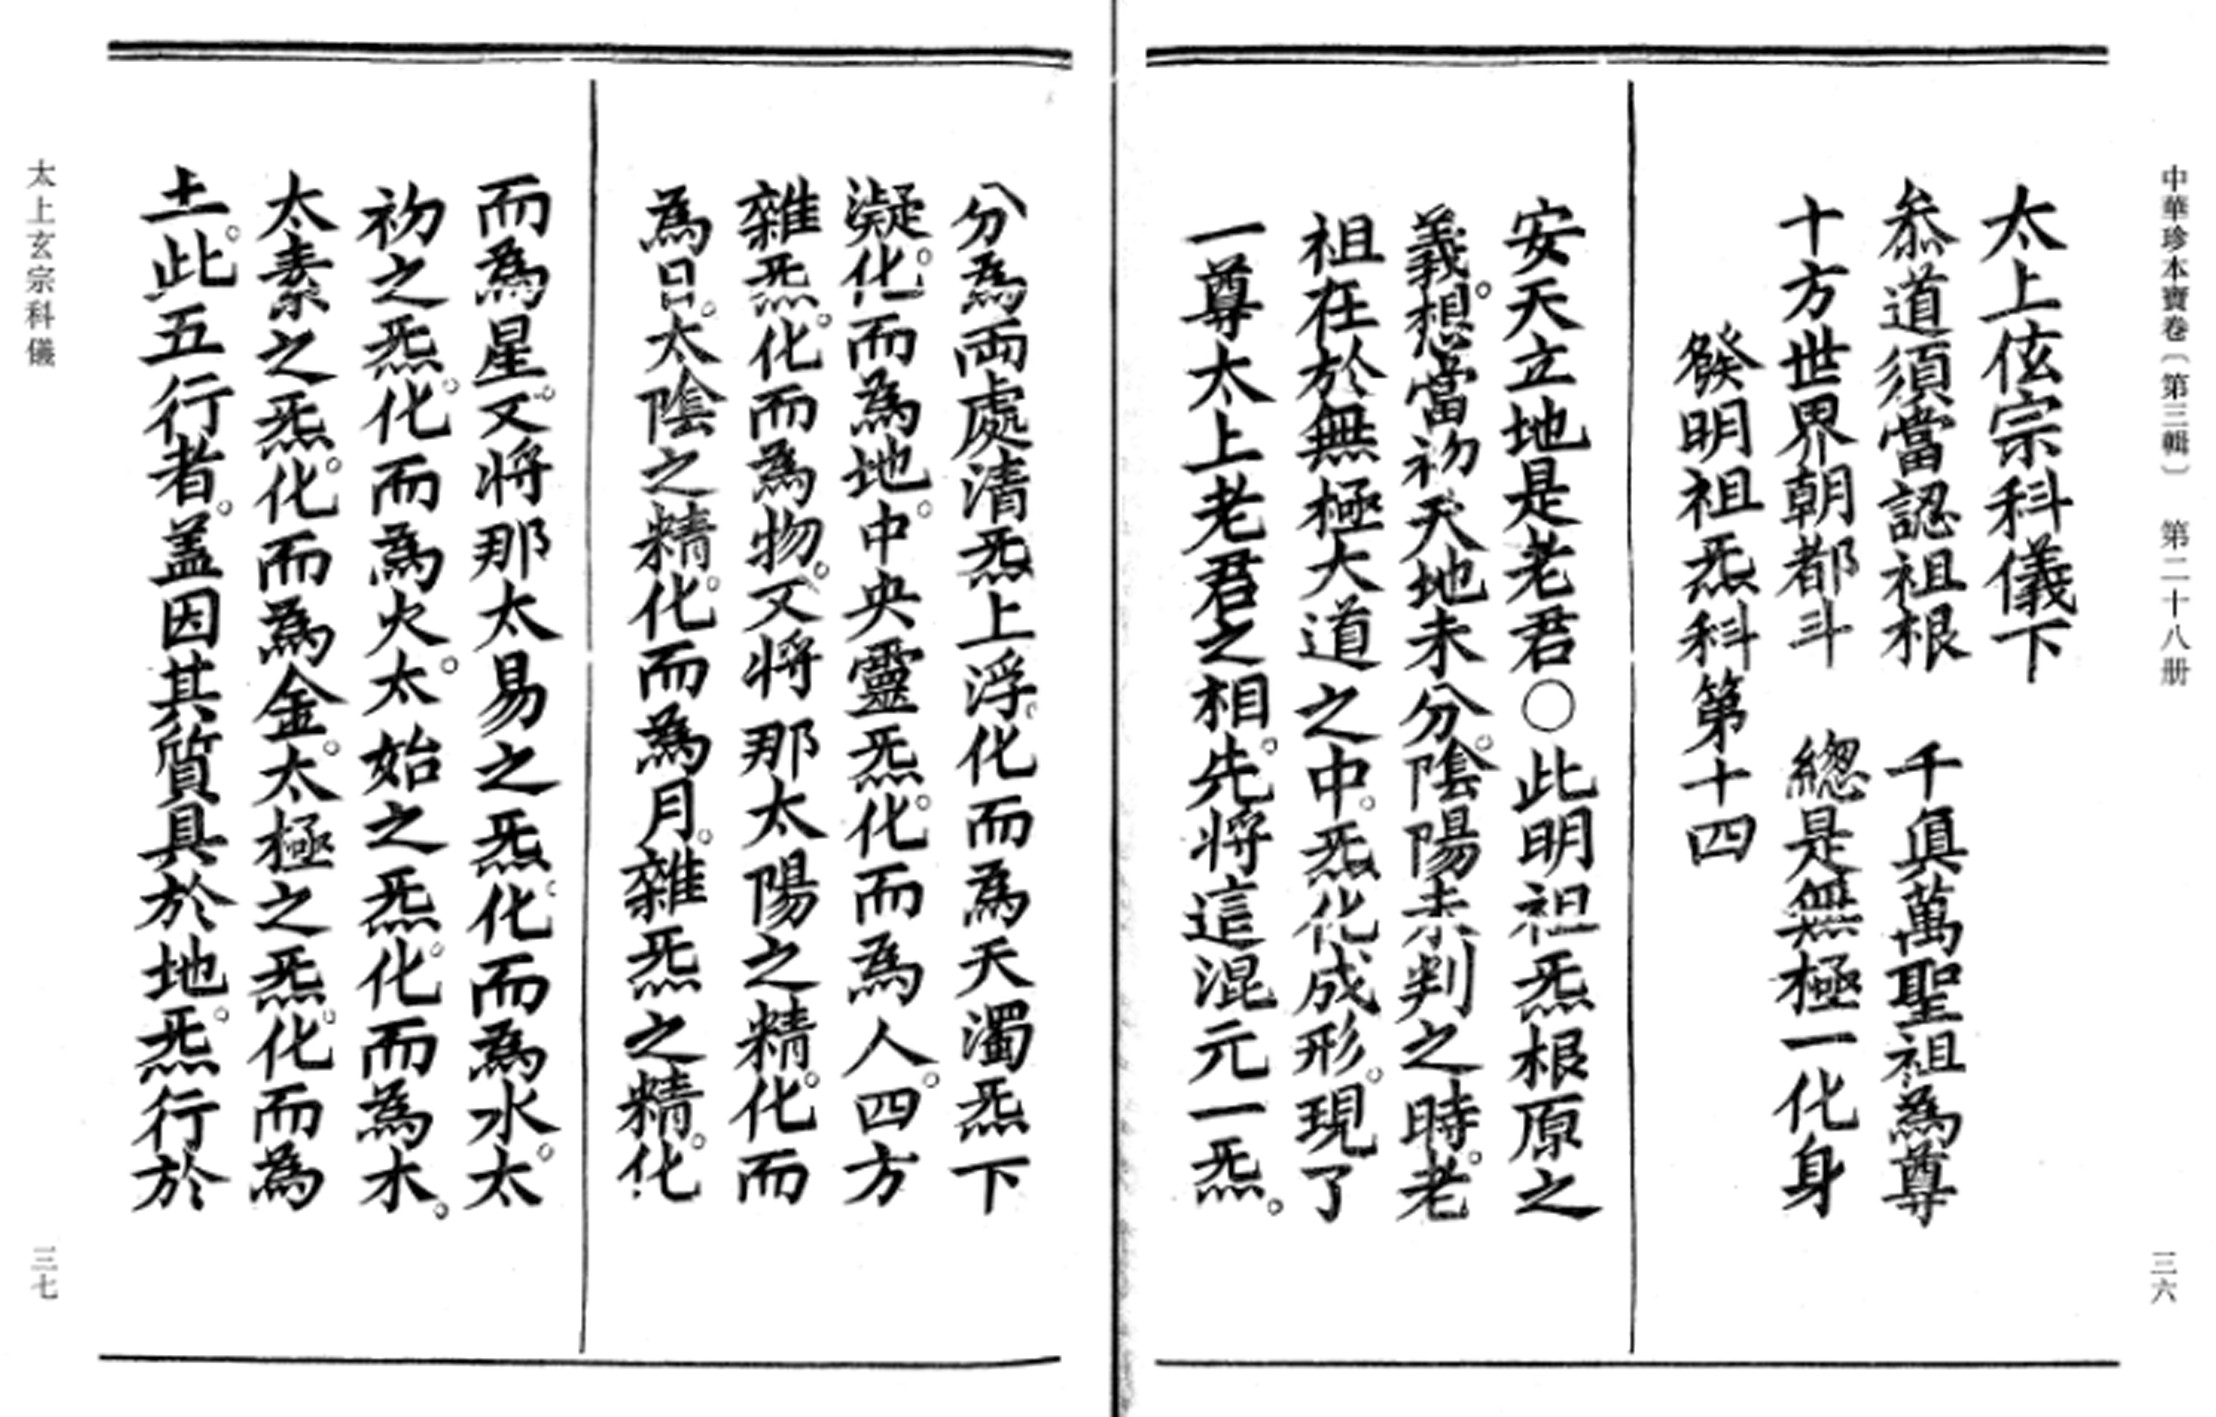 中華珍本寶卷〔第三輯〕 第二十八册
太上伭宗科儀下
叅道須當認祖根 千眞萬聖祖為尊
十方世界朝都斗 緫是無極一化身
發明祖炁科第十四
安天立地是老君〇此明祖炁根原之
義。想當初天地未分。陰陽未判之時。老
祖在於無極大道之中。炁化成形。現了
一尊太上老君之相。先將這混元一炁。
三六
分為兩處清炁上浮。化而為天濁炁下
凝。化而為地。中央靈炁。化而為人。四方
雜炁。化而為物。又將那太陽之精。化而
為日。太陰之精。化而為月。雜炁之精。化
而為星。又將那太易之炁。化而為水。太
初之炁。化而為火。太始之炁。化而為木。
太素之炁。化而為金。太極之炁。化而為
土。此五行者。盖因其質具於地。炁行於
太上玄宗科儀
三七